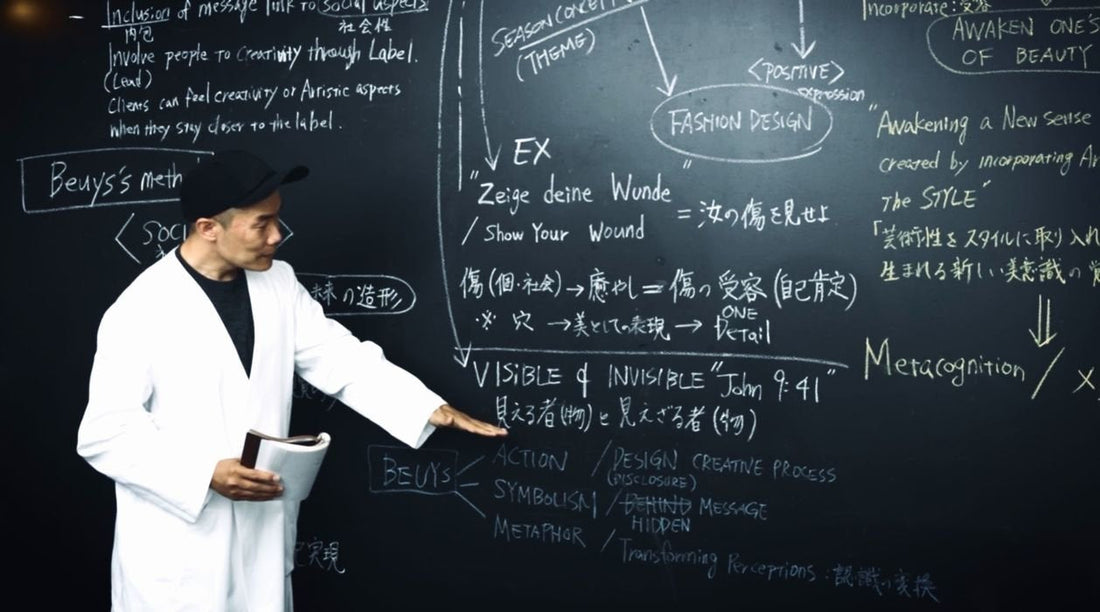 - Inclusion of message link to social aspects
内包 社会性
Involve people to Creativity through Label.
(Lead)
Clients can feel creativity or Artistic aspects
when they stay closer to the label.
Beuys's meth
< SOCI
未来の造形)
実現
SEASON CONCEPT
(THEME)
<POSITIVE>
expression
FASHION DESIGN
EX
"Zeige deine Wunde"
/ Show Your Wound
= 汝の傷を見せよ
傷(個・社会)→癒やし=傷の受容(自己肯定)
※ 穴 →美としての表現→ ONE Detail
VISIBLE & INVISIBLE "John 9:41"
見える者(物)と見えざる者(物)
BEUYS
ACTION / DESIGN CREATIVE PROCESS
(DISCLOSURE)
SYMBOLISM / BEHIND MESSAGE
HIDDEN
METAPHOR / Transforming Perceptions:認識の変換
Incorporate:受容
AWAKEN ONE'S
OF BEAUTY
"Awakening a New sense
created by incorporating Ar
the STYLE"
「芸術性をスタイルに取り入れ
生まれる新しい美意識の覚
Metacognition / X